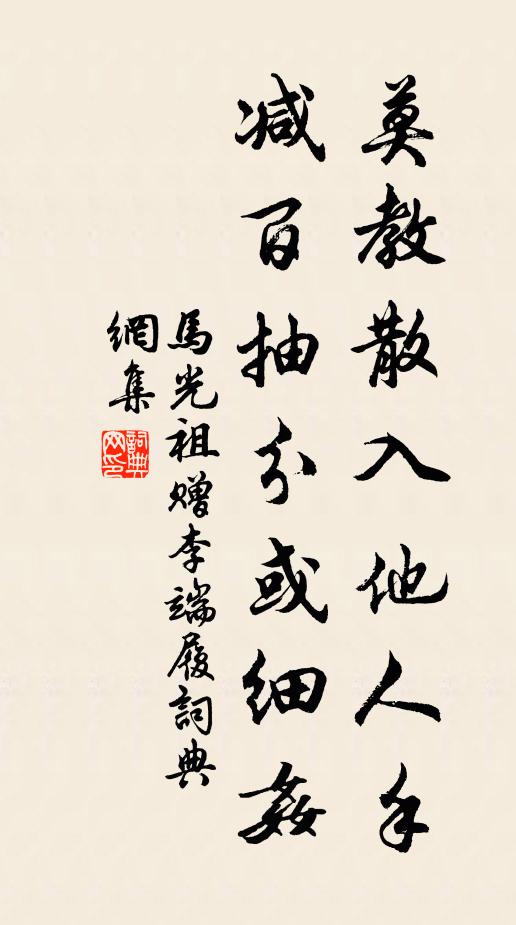 莫教散入他人手
减百抽分或细姦
馬光祖赠李端履詞典
網集
詞典网印